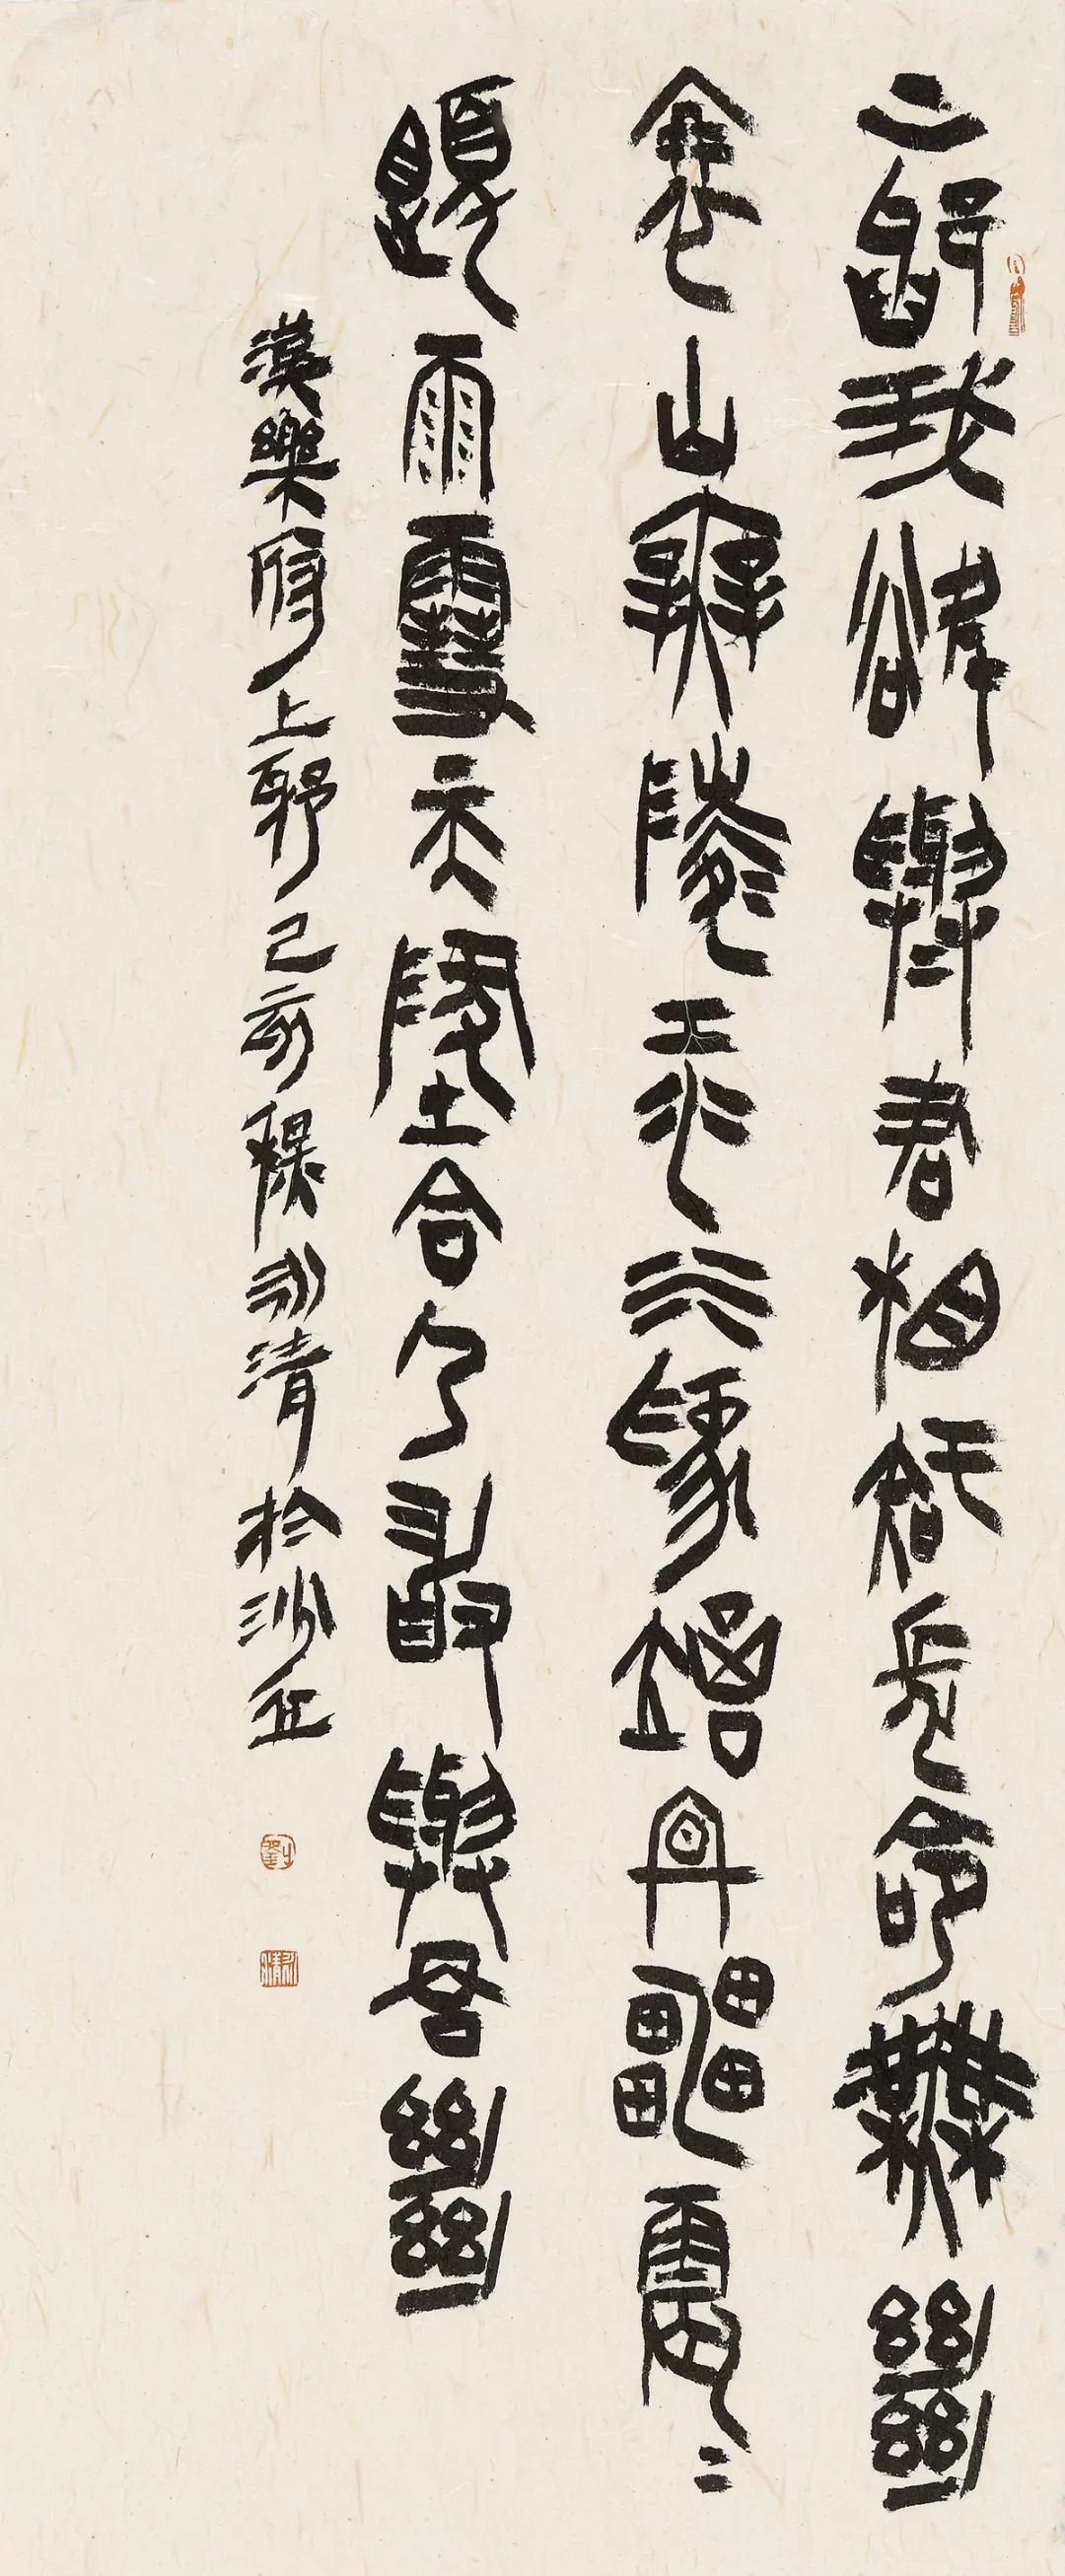 上邪我欲與君相知長命無絕
衰山無陵江水爲竭冬雷震＝
夏雨雪天地合乃敢與君絕
漢樂府上邪己亥 永清於沙丘